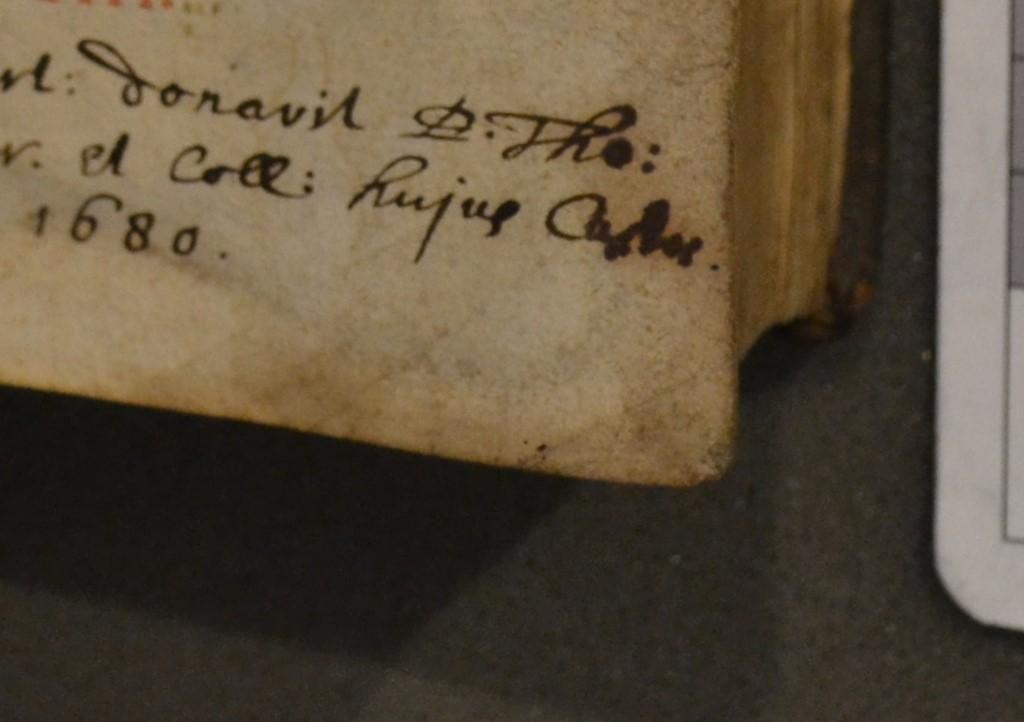 rt: donavit D. Tho:
r. et Coll: hujus Custos.
1680.